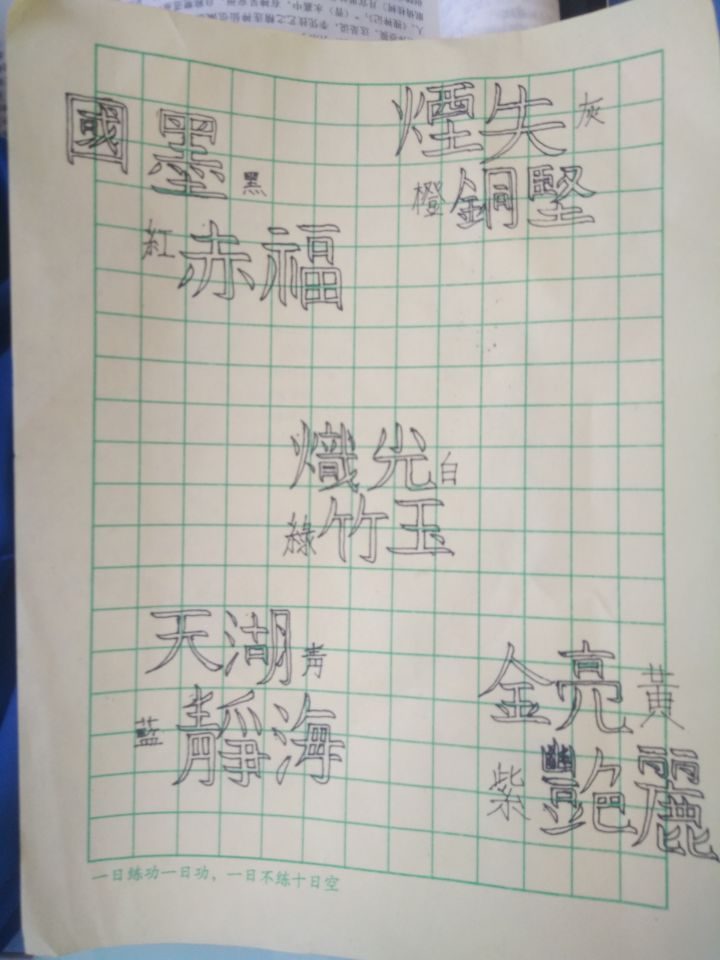 國墨黑
煙失灰
橙銅堅
紅赤福
熾光白
綠竹玉
天湖青
藍靜海
金亮黃
紫豔麗
一日练功一日功，一日不练十日空